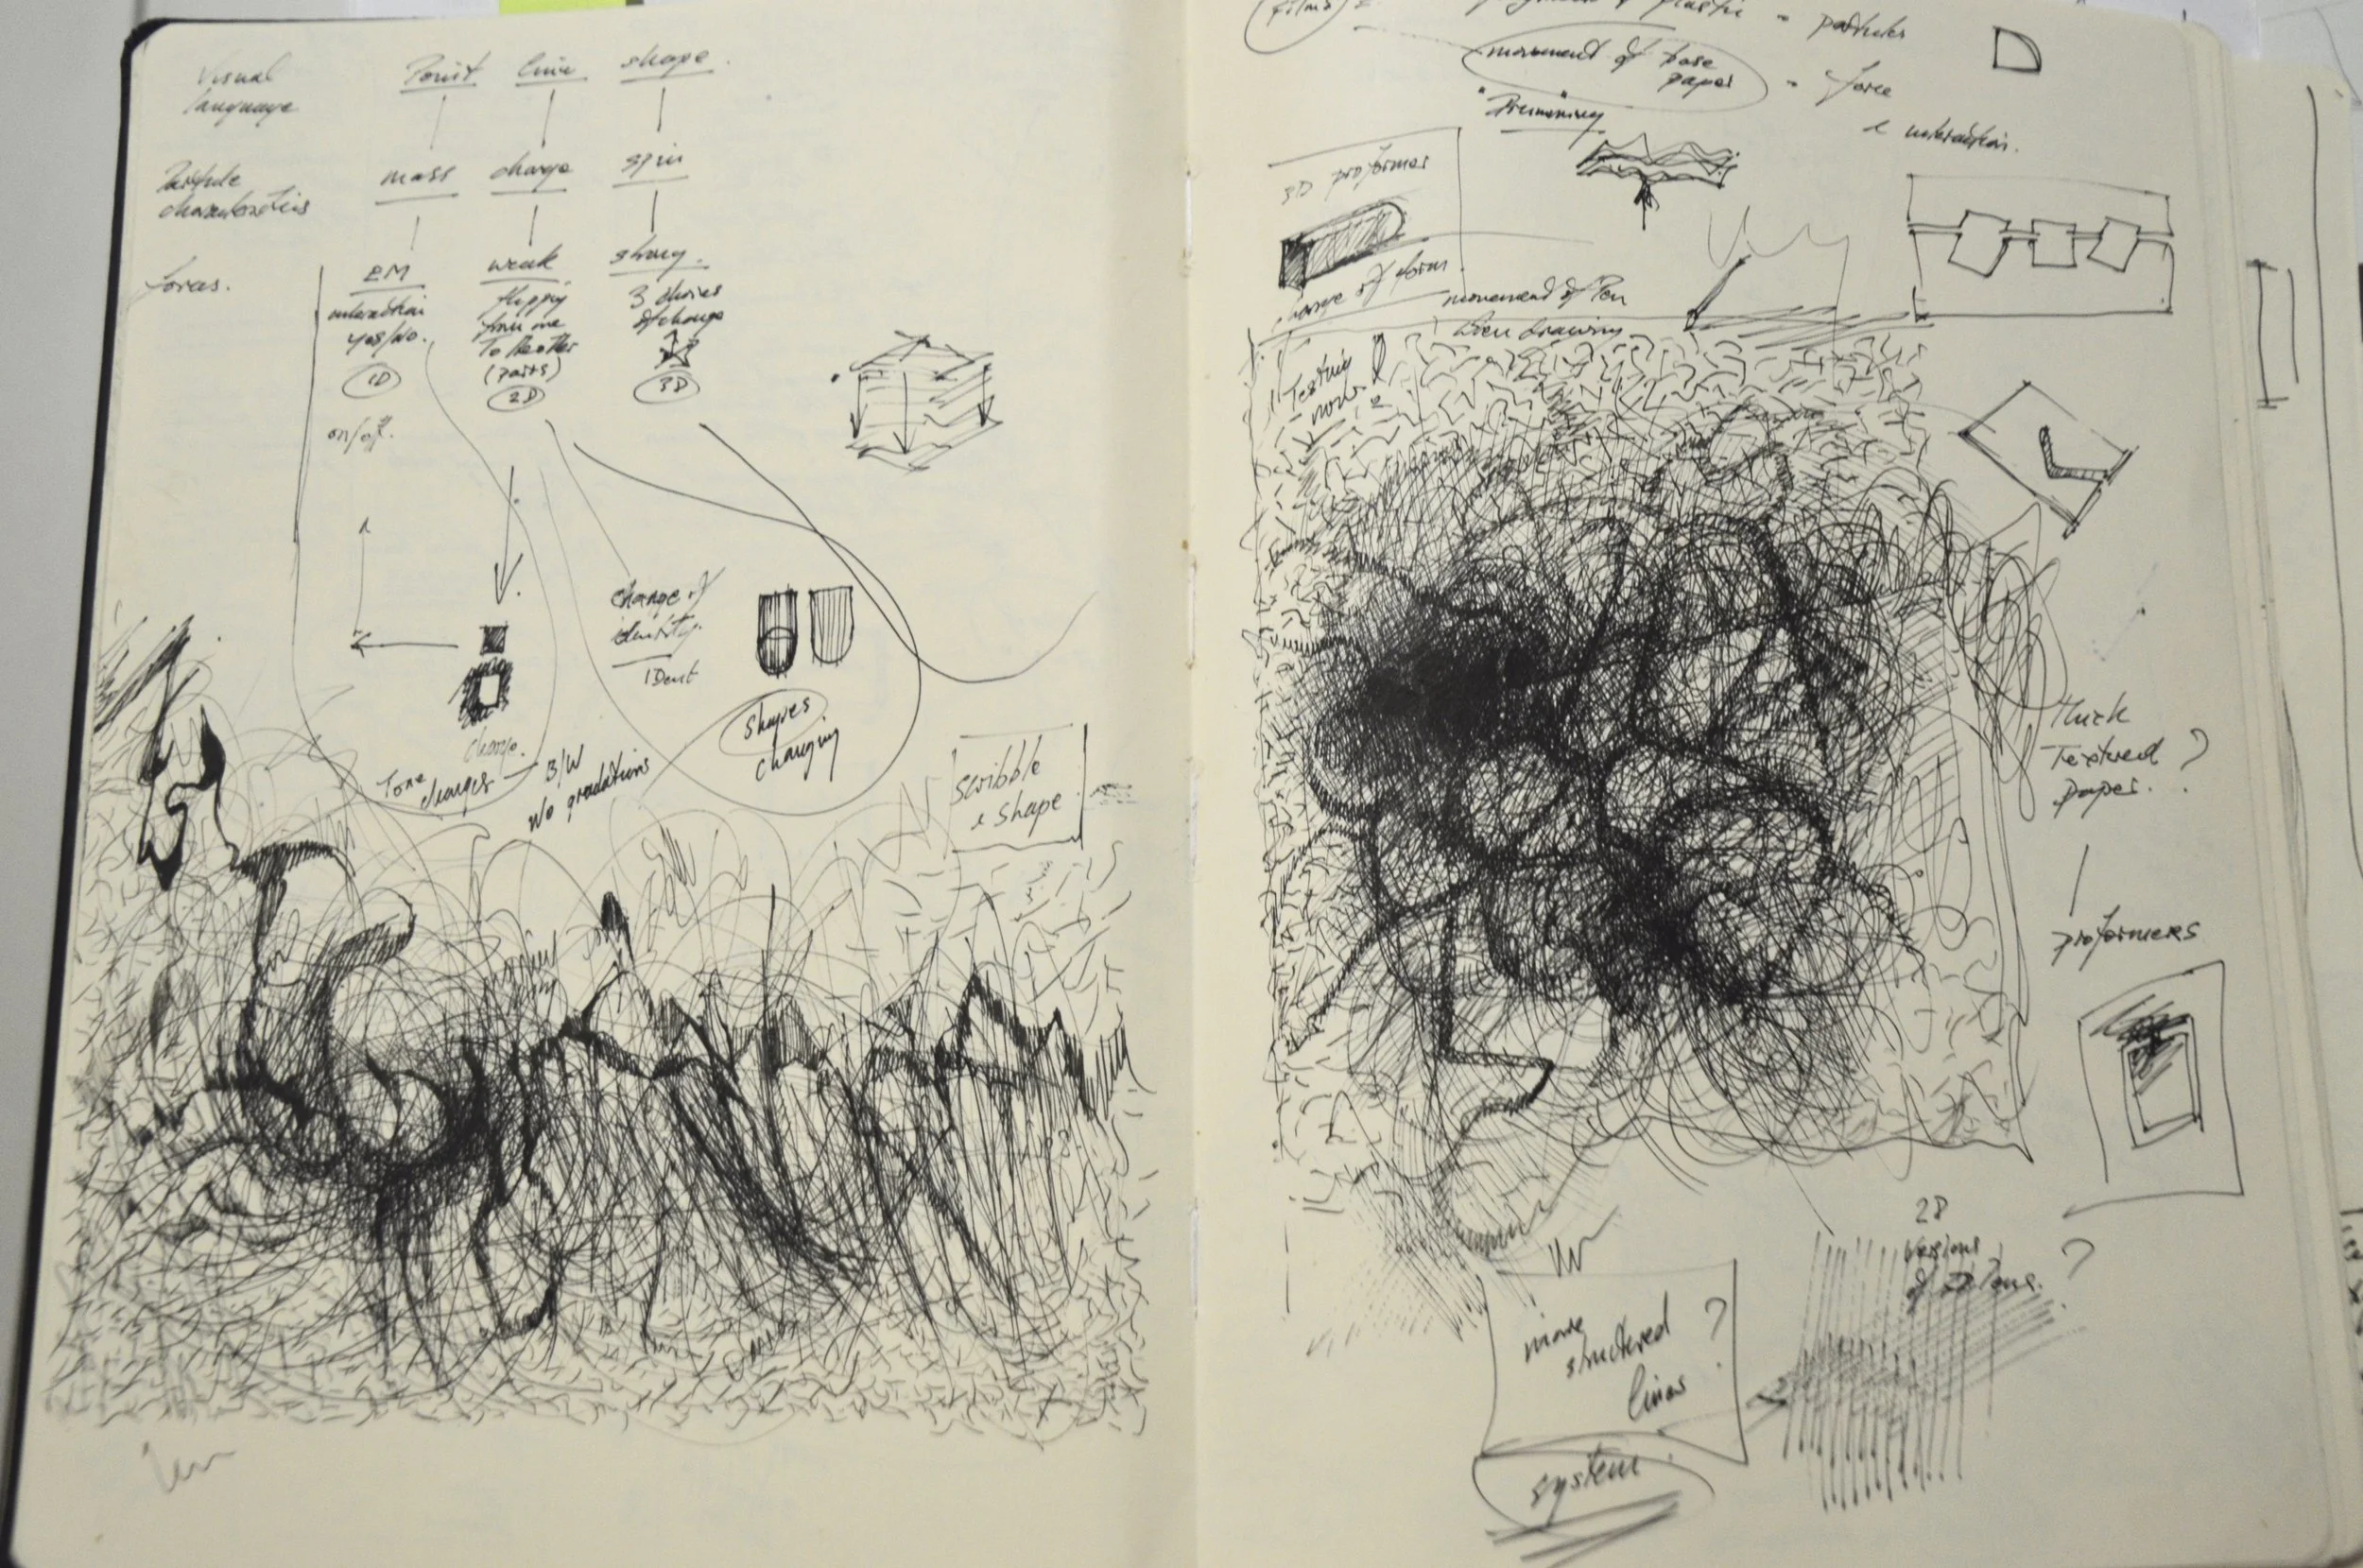 Visual
language
Point line shape.
Particle
characteristics
mass charge spin
forces.
EM
interaction
yes/no.
1D
on/off.
weak
flipping
from one
to Another
(parts)
2D
strong.
3 choices
of change
3D
change of
identity.
IDent
charge.
Tone
changes - B/W
no gradations
shapes
changing
scribble
& shape
(Films) =
plastic = particles
movement of base
paper = force
& interaction.
3D proformer
change of form.
movement of Pen
when drawing
Testing
now!
Thick
Textured ?
paper.
proformers
28
versions
of
?
more
structured ?
lines
system.